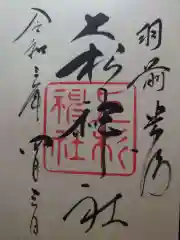 羽前米沢
上杉神社
上杉
神社
令和三年 月三日